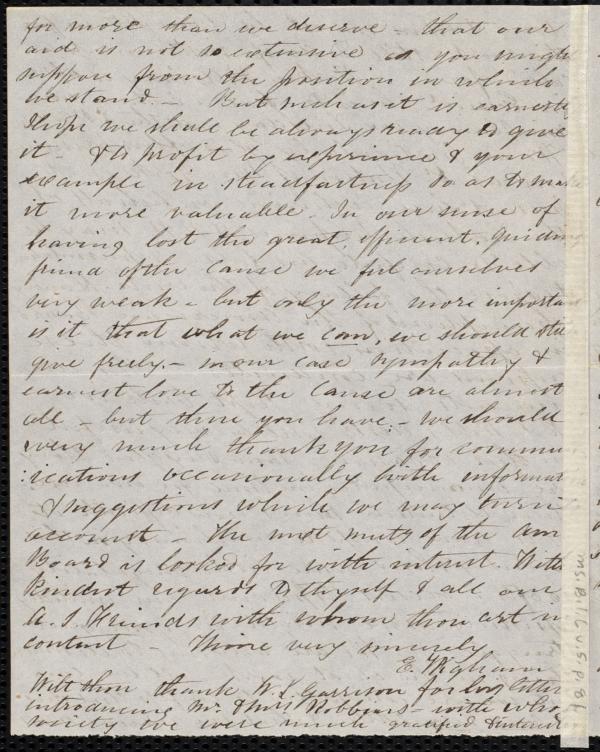 for more than we deserve - that our
aid is not so extensive as you might
suppose from the position in which
we stand. - But such as it is earnestly
I hope we shall be always ready to give
it - & to profit by experience & your
example in steadfastness so as to make
it more valuable. In our sense of
having lost the great, efficient, guiding
friend of the Cause we feel ourselves
very weak - but only the more important
is it that what we can, we should still
give freely. - in our case sympathy &
earnest love to the Cause are almost
all - but these you have. - we should
very much thank you for commun
ications occasionally with informat
& suggestions which we may turn
account - The next meetg of the Am
Board is looked for with interest. With
kindest regards to thyself & all our
A. S. Friends with whom thou art in
contact - Thine very sincerely
E. Wigham
Wilt thou thank W. L. Garrison for his letter
introducing Mr. & Mrs Robbins - with whose
society we were much gratified & interes
Ms.B.1.6 v.5, p.86